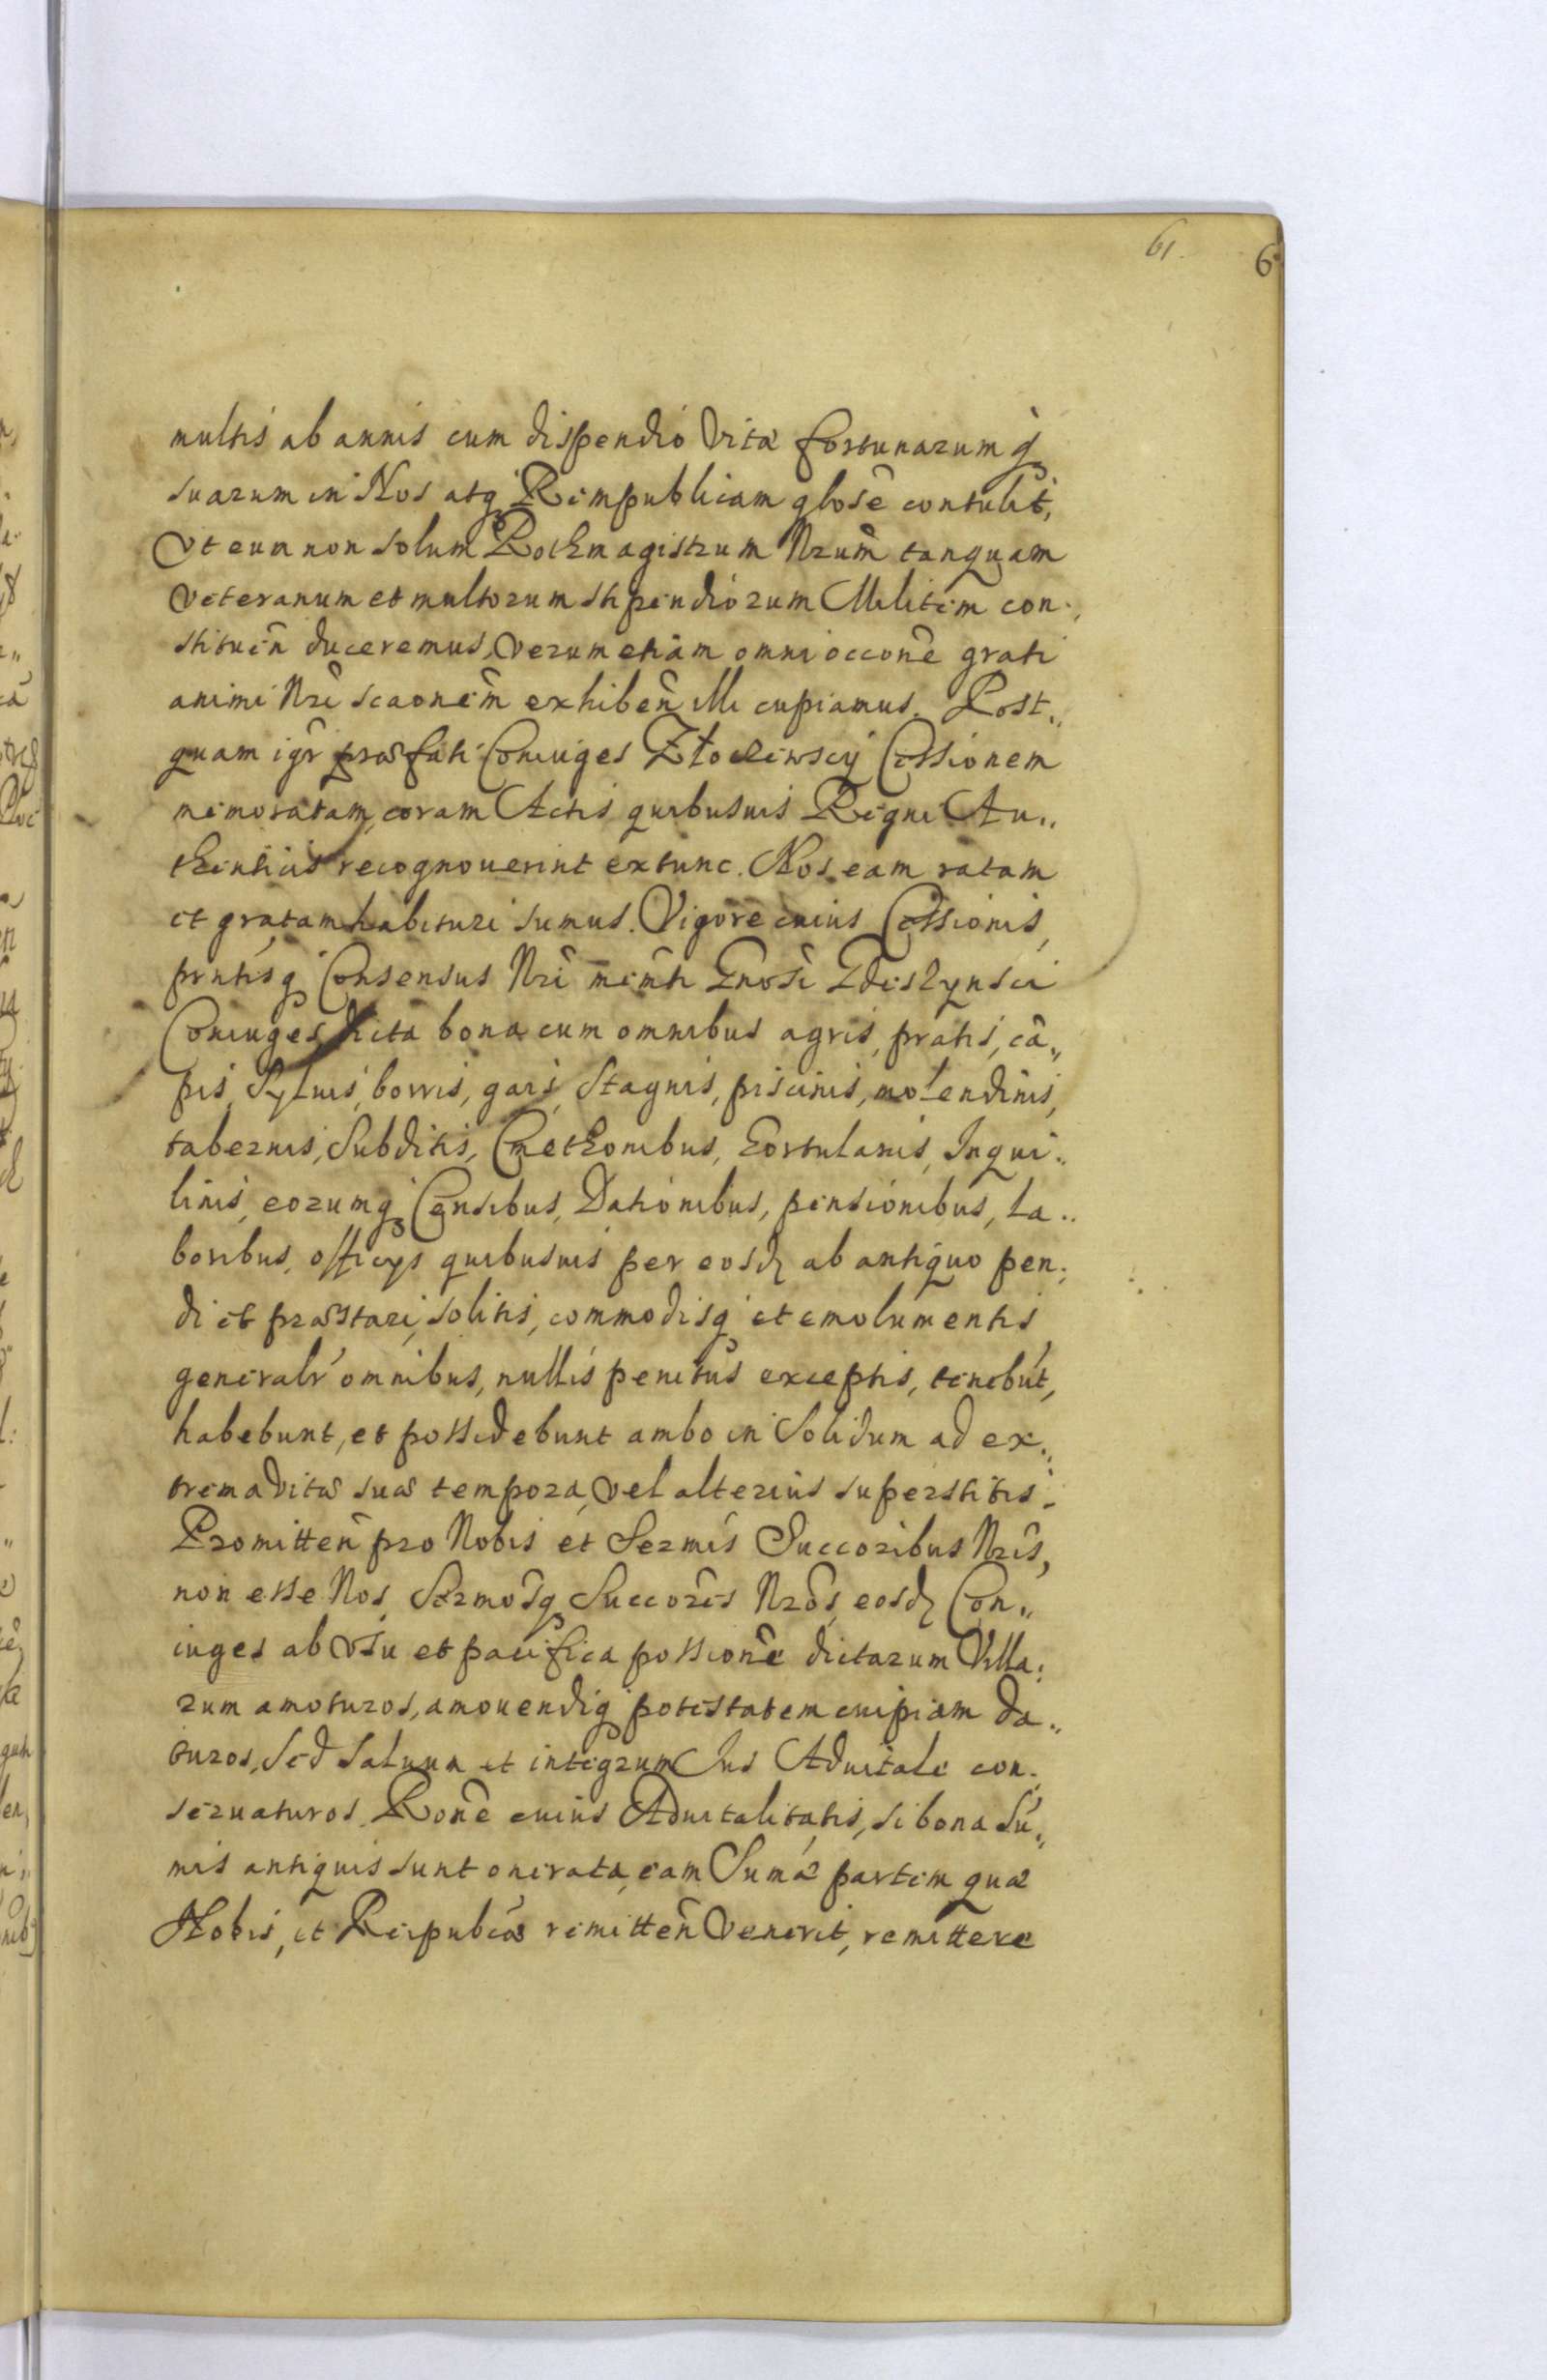 61.
6
multis ab annis cum dispendio Vitæ fortunarumq
suarum in Nos atq Rempublicam glose contulit,
Vt eum non solum Rothmagistrum Nrum tanquam
Veteranum et multorum stipendiorum Militem con„
stituen duceremus, Verum etiam omni occone grati
animi Nri scaonem exhiben illi cupiamus. Post„
quam igr præfati Coniuges Złoc
memoratam, coram Actis quibusuis Regni Au„
thenticis recognouerint extunc. Nos eam ratam
et gratam habituri sumus. Vigore cuius Cessionis,
prntisq Consensus Nri memti Gnosi
Coniuges dicta bona cum omnibus agris, pratis, cã„
pis, Syluis, borris, gais, Stagnis, piscinis, molendinis,
tabernis, Subditis, Cmethonibus, hortulanis, Inqui„
linis, eorumq Censibus, Dationibus, pensionibus, la„
boribus, officijs quibusuis per eosd ab antiquo pen„
di et præstari solitis, commodisq et emolumentis
generalr omnibus, nullis penitus exceptis, tenebũt,
habebunt, et possidebunt ambo in Solidum ad ex„
trema Vitæ suæ tempora, Vel alterius superstitis.
Promitten pro Nobis et Sermis Succoribus Nris,
non esse Nos, Sermosq Succores Nros, eosd Con„
iuges ab Vsu et pacifica possione dictarum Villa„
rum amoturos, amouendiq potestatem cuipiam da„
turos, Sed Saluum et integrum Ius Aduitale con„
seruaturos. Rone cuius Aduitalitatis, si bona Sũ„
mis antiquis sunt onerata, eam Sumæ partem quæ
Nobis, et Reipubcæ remitten Venerit, remittere